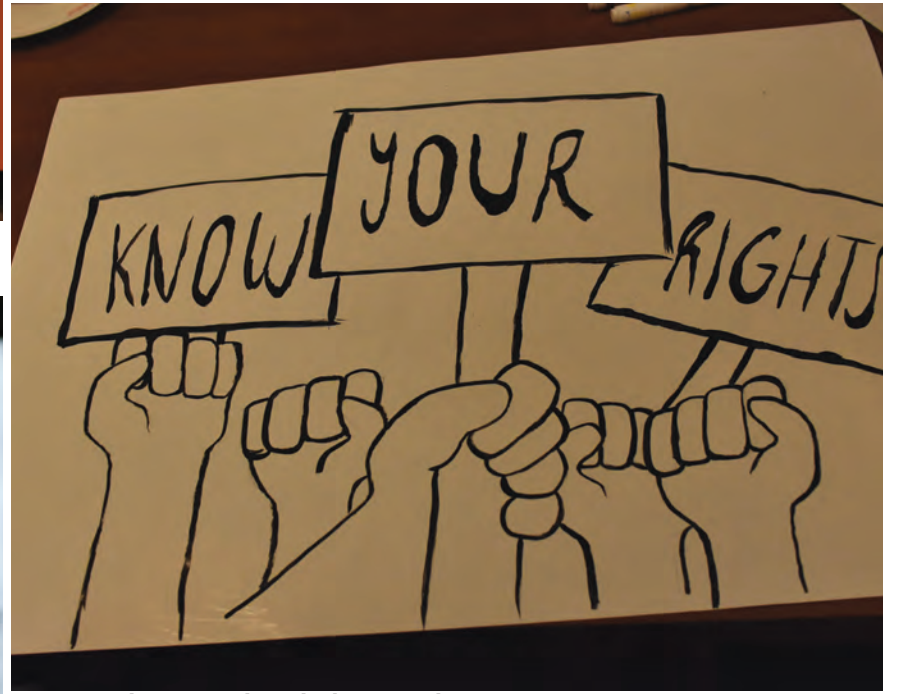 KNOW YOUR RIGHTS